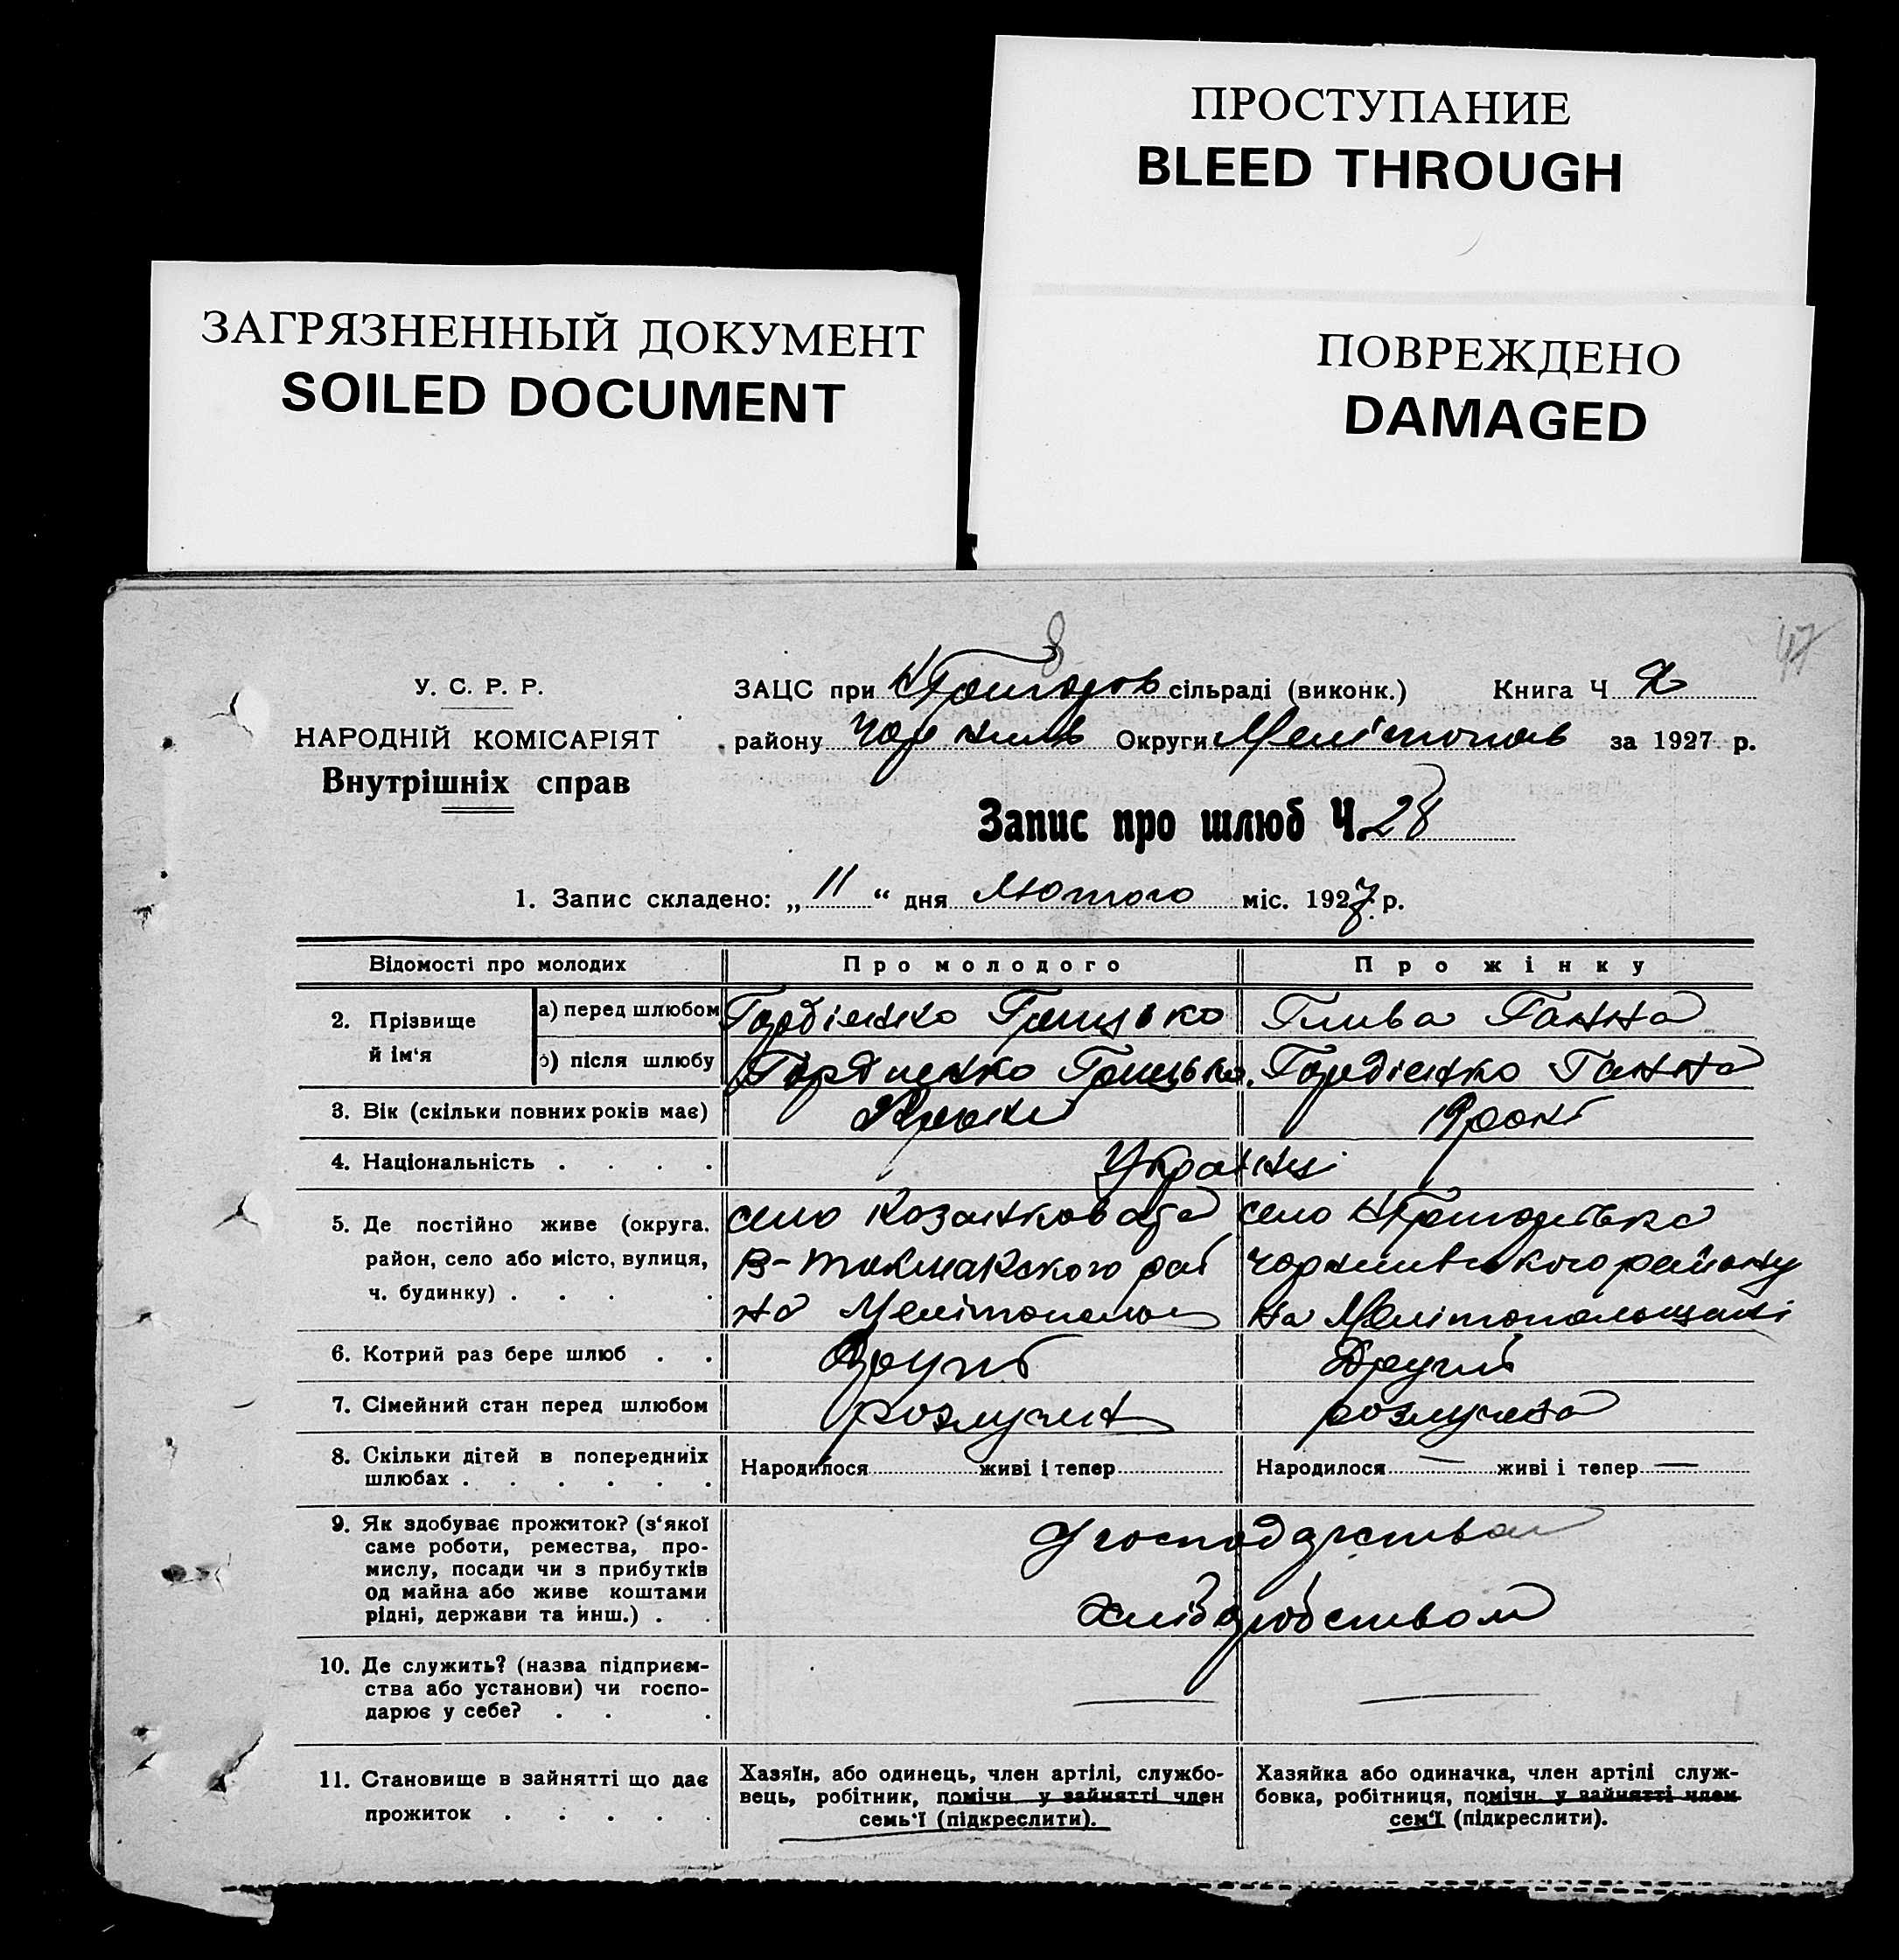 ПРОСТУПАНИЕ
BLEED THROUGH
ЗАГРЯЗНЕННЫЙ ДОКУМЕНТ
SOILED DOCUMENT
ПОВРЕЖДЕНО
DAMAGED
8
47
У. С. Р. Р.
НАРОДНІЙ КОМІСАРІЯТ
Внутрішніх справ
ЗАЦС при сільраді (виконк.) Книга Ч 2
району Округи Мелітопольс за 1927 р.
Запис про шлюб Ч. 28
1. Запис складено: „ 11 “ дня Лютого міс. 1927 р.
Відомості про молодих Про молодого Про жінку
2. Прізвище й ім‘я
а) перед шлюбом Гордієнко Грицько Глива Ганна
б) після шлюбу Гордиенко Грицько Гордієнко Ганна
3. Вік (скільки повних років має) 19 рокі
4. Національність . . . . Українці
5. Де постійно живе (округа, село село
район, село або місто, вулиця, В-Токмакского рай Чернигівського району
ч. будинку) . . . . на Мелітопольщ на Мелітопольщині
6. Котрий раз бере шлюб . . Другий Другий
7. Сімейний стан перед шлюбом розлучен розлучена
8. Скільки дітей в попередниіх
шлюбах . . . . . .
Народилося живі і тепер Народилося — живі і тепер —
9. Як здобуває прожиток? (з‘якої
саме роботи, ремества, про-
мислу, посади чи з прибутків
од майна або живе коштами
рідні, держави та инш.) . .
У господарстві
хліборобством
10. Де служить? (назва підприєм-
ства або установи) чи госпо-
дарює у себе? . . .
11. Становище в зайнятті що дає
прожиток . . . . .
Хазяїн, або одинець, член артілі, службо-
вець, робітник, помічн у зайнятті член
семь‘ї (підкреслити).
Хазяйка або одиначка, член артілі служ-
бовка, робітниця, помічн у зайнятті член
сем‘ї (підкреслити).